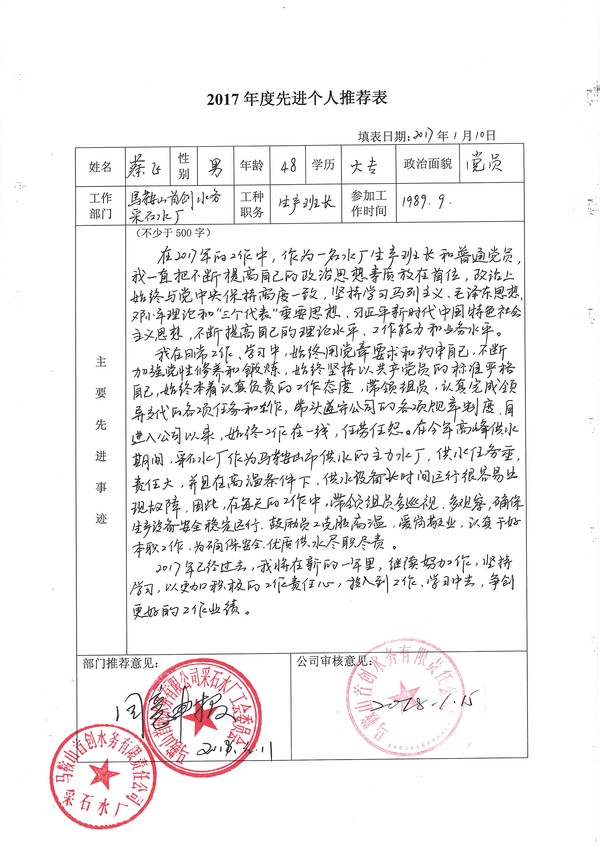 2017 年度先进个人推荐表
填表日期：2017年 1月 10日
姓名 蔡飞 性别 男 年龄 48 学历 大专 政治面貌 党员
工作部门 马鞍山首创水务采石水厂 工种职务 生产班长 参加工作时间 1989.9.
主要先进事迹
（不少于 500 字）
在2017年的工作中，作为一名水厂生产班长和普通党员，
我一直把不断提高自己的政治思想素质放在首位，政治上
始终与党中央保持高度一致，坚持学习马列主义、毛泽东思想、
邓小平理论和"三个代表"重要思想、习近平新时代中国特色社会
主义思想，不断提高自己的理论水平、工作能力和业务水平。
我在日常工作、学习中，始终用党章要求和约束自己，不断
加强党性修养和锻炼，始终坚持以共产党员的标准严格
自己，始终本着认真负责的工作态度，带领组员，认真完成领
导交代的各项任务和工作，带头遵守公司的各项规章制度．自
进入公司以来，始终工作在一线，任劳任怨。在今年高峰供水
期间，采石水厂作为马鞍山市供水的主力水厂，供水任务重，
责任大，并且在高温条件下，供水设备长时间运行很容易出
现故障．因此，在每天的工作中，带领组员多巡视、多观察，确保
生产设备安全稳定运行．鼓励员工克服高温，爱岗敬业，认真干好
本职工作．为确保安全．优质供水尽职尽责。
2017年已经过去，我将在新的一年里，继续努力工作，坚持
学习，以更加积极的工作责任心，投入到工作、学习中去，争创
更好的工作业绩。
部门推荐意见：
公司审核意见：
2018.1.11
2018.1.15
马鞍山首创水务有限责任公司采石水厂工会委员会
马鞍山首创水务有限责任公司
马鞍山首创水务有限责任公司
采石水厂